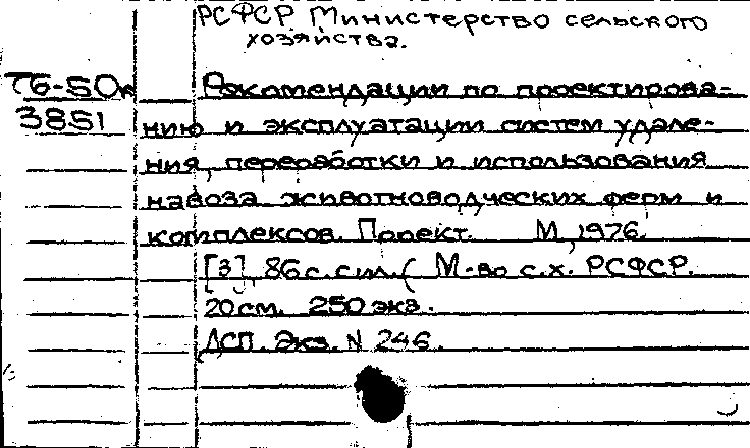 РСФСР Министерство сельского
хозяйства.
Т6-50к
3851
Рекомендации по проектирова-
нию и эксплуатации систем удале-
ния, переработки и использования
навоза животноводческих ферм и
комплексов. Проект. М, 1976.
[3], 86 с. с ил. ( М-во с.х. РСФСР.
20 см. 250 экз.
ДСП. Экз. N 246.